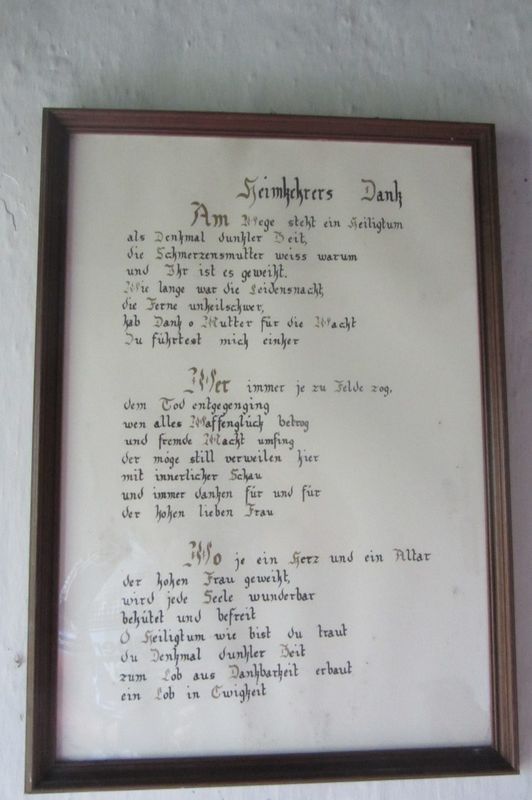 Heimkehrers Dank
Am Wege steht ein Heiligtum
als Denkmal dunkler Zeit,
die Schmerzensmutter weiss warum
und Ihr ist es geweiht.
Wie lange war die Leidensnacht,
die Ferne unheilschwer,
hab Dank o Mutter für die Macht
Du führtest mich einher
Wer immer je zu Felde zog,
dem Tod entgegenging
wen alles Waffenglück betrog
und fremde Macht umfing
der möge still verweilen hier
mit innerlicher Schau
und immer danken für und für
der hohen lieben Frau
Wo je ein Herz und ein Altar
der hohen Frau geweiht,
wird jede Seele wunderbar
behütet und befreit
O Heiligtum wie bist du traut
du Denkmal dunkler Zeit
zum Lob aus Dankbarkeit erbaut
ein Lob in Ewigkeit